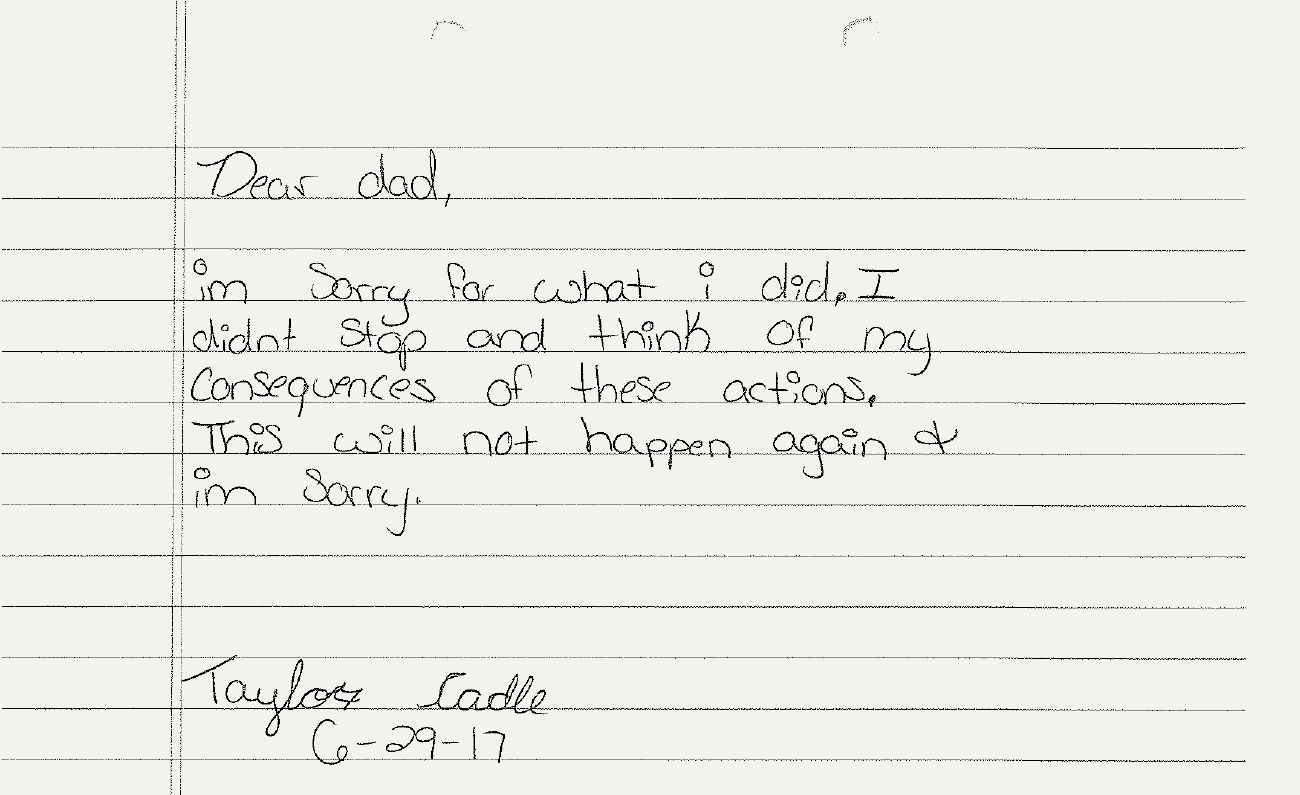 Dear dad,
im Sorry for what i did. I
didnt stop and think of my
Consequences of these actions.
This will not happen again &
im Sorry.
Taylor Cadle
6-29-17